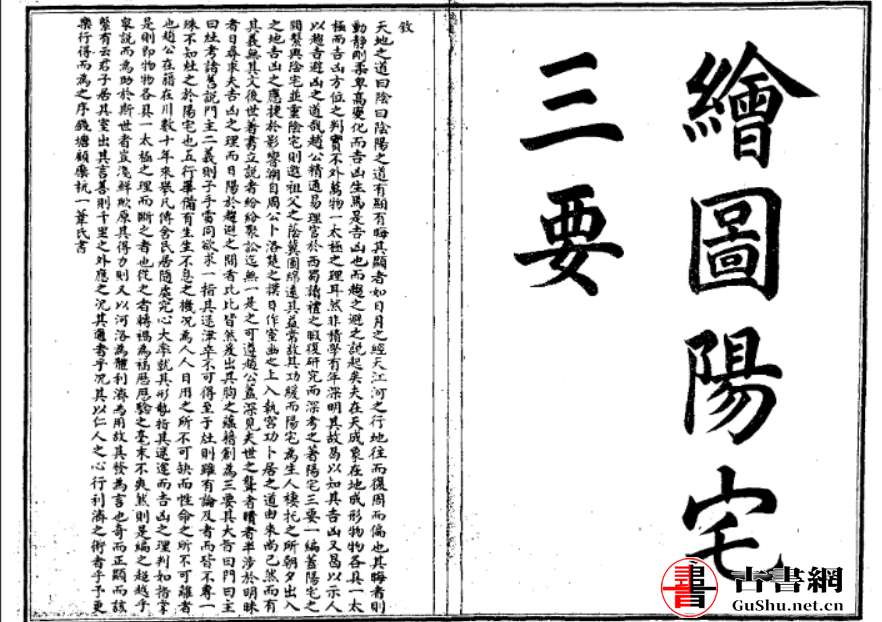 繪圖陽宅
三要
敘
天地之道曰陰曰陰陽之道有顯有晦其顯者如日月之經天江河之行地往而復周而徧也其晦者則
動靜剛柔卑高變化而吉凶生焉是吉凶也而趨之避之說起矣夫在天成象在地成形物物各具一太
極而吉凶方位之判實不外萬物一太極之理耳然非積學有年深明其故曷以知其吉凶又曷以示人
以趨吉避凶之道哉趙公精通易理官於西蜀讀禮之暇復研究而深考之著陽宅三要一編蓋陽宅之
關繫與陰宅並重陰宅則邀祖父之蔭冀圖綿遠其益常故其功緩而陽宅為生人棲托之所朝夕出入
之地吉凶之應捷於影響溯自周公卜洛楚之撲日作室幽之上入執宮功卜居之道由來尚已然而有
其義無其文後世著書立說者紛紛聚訟迄無一是之可遵趙公蓋深見夫世之聾者瞶者半涉於明昧
者日尋求夫吉凶之理而日陽於趨避之間者比比皆然爰出其胸之蘊籍創為三要其大旨曰門曰主
曰灶考諸舊說門主二義則子手雷同欲求一指其迷津卒不可得至于灶則雖有論及者而皆不專一
殊不知灶之於陽宅也五行畢備有生生不息之機況為人人日用之所不可缺而性命之所不可離者
也趙公在籍在川數十年來舉凡傳舍民居隨處究心大率就其形勢指其迷運而吉凶之理判如指掌
是則即物物各具一太極之理而斷之者也從之者轉禍為福歷歷驗之毫末不爽然則是編之超越乎
眾說而為助於斯世者豈淺鮮歟原其得力則又以河洛為體利濟為用故其發為言也奇而正顯而該
繫有云君子居其室出其言善則千里之外應之況其邇者乎況其以仁人之心行利濟之術者乎予更
樂行得而為之序錢塘顧 杭一葦氏書
古書網
GuShu.net.cn